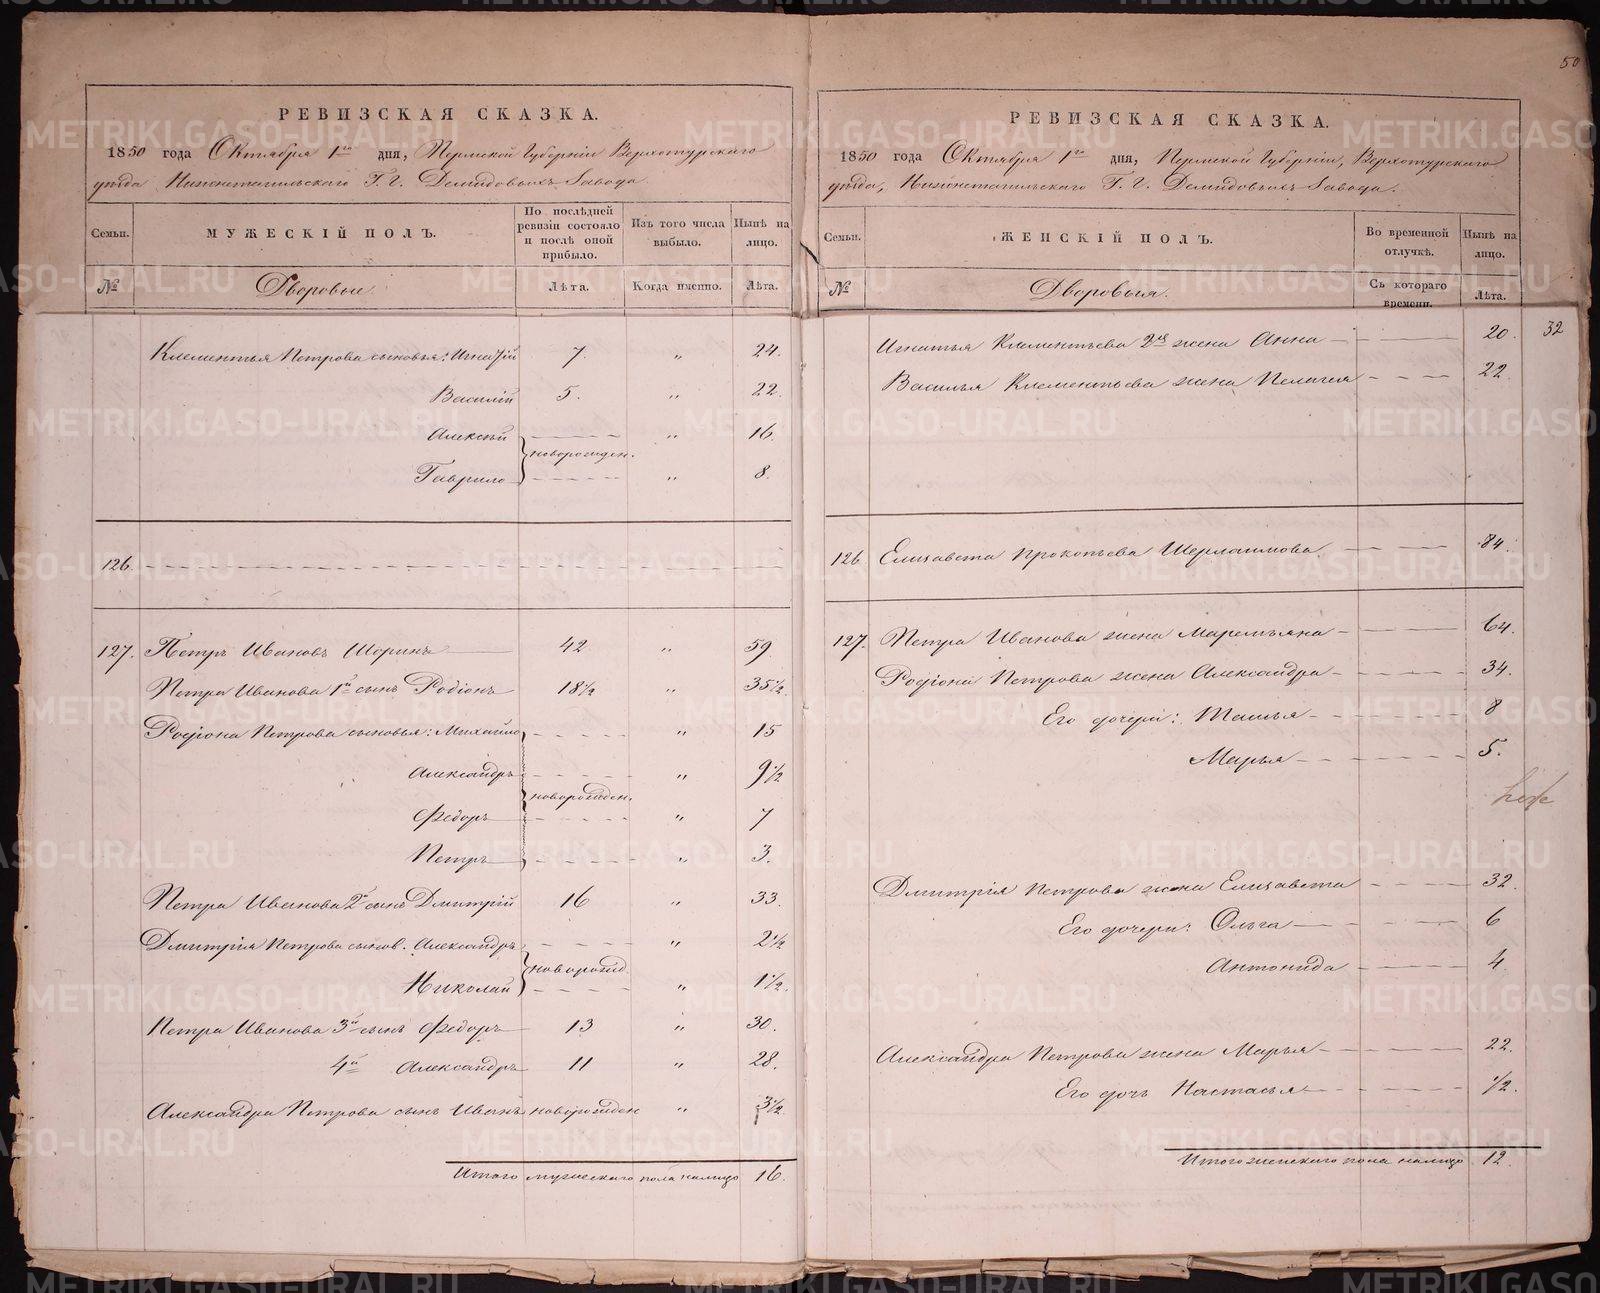 50
РЕВИЗСКАЯ СКАЗКА.
1850 года Октября 1го дня, Пермской Губерніи Верхотурскаго
уѣзда Нижнетагильскаго Г. г. Демидовыхъ Завода.
Семьи. МУЖЕСКІЙ ПОЛЪ. По послѣдней ревизіи состояло и послѣ оной прибыло. Изъ того числа выбыло. Нынѣ на лицо.
№ Дворовые. Лѣта. Когда именно. Лѣта.
Клементья Петрова сыновья: Игнатій 7. " 24.
Василій 5. " 22.
Алексѣй " 16.
новорожден.
Гаврило " 8.
126.
127. Петръ Ивановъ Шоринъ 42 " 59
Петра Иванова 1й сынъ Родіонъ 18½ " 35½.
Родіона Петрова сыновья: Михайло " 15
Александръ " 9½
новорожден.
Федоръ " 7
Петръ " 3.
Петра Иванова 2й сынъ Дмитрій 16 " 33.
Дмитрія Петрова сынов. Александръ " 2½
новорожд.
Николай " 1½.
Петра Иванова 3й сынъ Федоръ 13 " 30.
4й Александръ 11 " 28.
Александра Петрова сынъ Иванъ новорожден " 3½.
Итого мужескаго пола налицо 16.
РЕВИЗСКАЯ СКАЗКА.
1850 года Октября 1го дня, Пермской Губерніи, Верхотурскаго
уѣзда, Нижнетагильскаго Г. г. Демидовыхъ Завода.
Семьи. ЖЕНСКІЙ ПОЛЪ. Во временной отлучкѣ. Нынѣ на лицо.
№ Дворовыя. Съ котораго времени. Лѣта.
32
Игнатья Клементьева 2я жена Анна 20.
Василья Клементьева жена Пелагея 22.
126. Елизавета Прокопьева 84.
127. Петра Иванова жена Маремьяна 64.
Родіона Петрова жена Александра 34.
Его дочери: Татья 8
Марья 5.
Дмитрія Петрова жена Елизавета 32.
Его дочери: Ольга 6
Антонида 4.
Александра Петрова жена Марья 22.
Его дочь Настасья ½.
Итого женскаго пола налицо 12.
METRIKI.GASO-URAL.RU